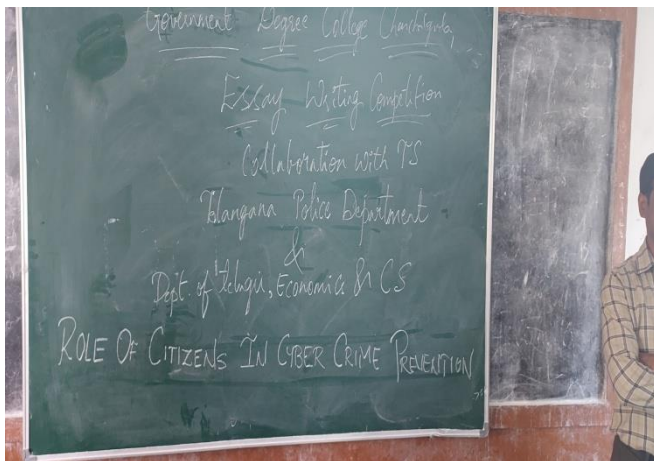 Government Degree College Chandrigula,
Essay Writing Competition
Collaboration with TS
Telangana Police Department
&
Dept. of Telugu, Economics & CS
ROLE OF CITIZENS IN CYBER CRIME PREVENTION